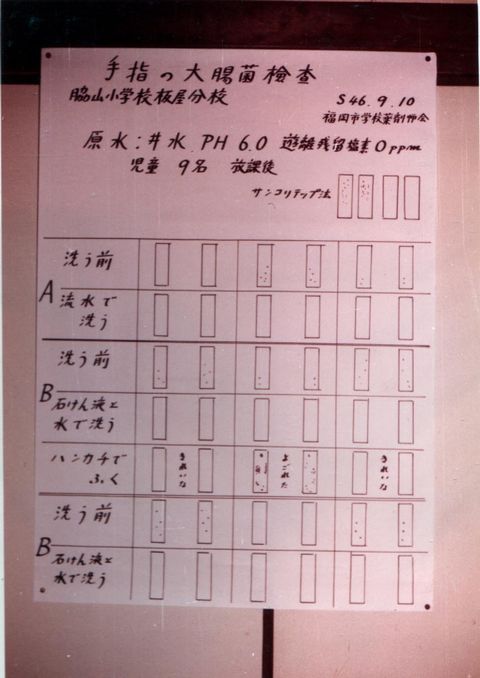 手指の大腸菌検査
脇山小学校板屋分校
S46.9.10
福岡市学校薬剤師会
原水:井水 PH 6.0 遊離残留塩素0ppm
児童 9名 放課後
サンコリテップ法
A
洗う前
流水で
洗う
B
洗う前
石けん液と
水で洗う
ハンカチで
ふく
きれいな
よごれた
きれいな
B
洗う前
石けん液と
水で洗う